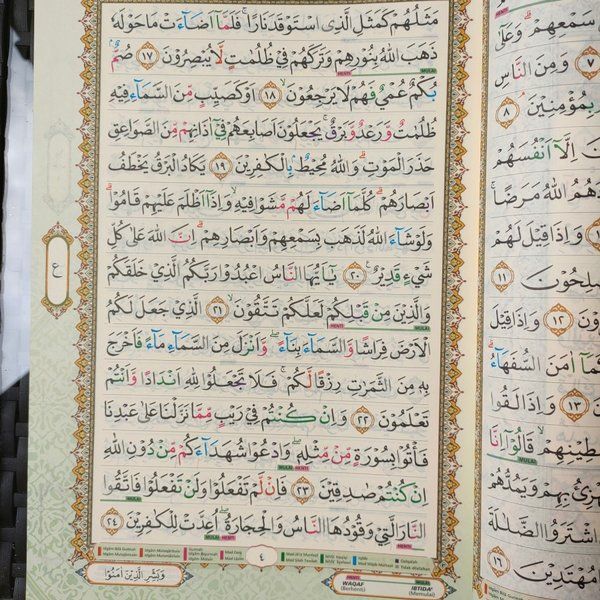 مَثَلُهُمْ كَمَثَلِ الَّذِى اسْتَوْقَدَ نَارًاۚ فَلَمَّآ اَضَاۤءَتْ مَا حَوْلَهٗ
ذَهَبَ اللّٰهُ بِنُوْرِهِمْ وَتَرَكَهُمْ فِيْ ظُلُمٰتٍ لَّا يُبْصِرُوْنَ ١٧ صُمٌّ ۢ
بُكْمٌ عُمْيٌ فَهُمْ لَا يَرْجِعُوْنَۙ ١٨ اَوْ كَصَيِّبٍ مِّنَ السَّمَاۤءِ فِيْهِ
ظُلُمٰتٌ وَّرَعْدٌ وَّبَرْقٌۚ يَجْعَلُوْنَ اَصَابِعَهُمْ فِيْٓ اٰذَانِهِمْ مِّنَ الصَّوَاعِقِ
حَذَرَ الْمَوْتِۗ وَاللّٰهُ مُحِيْطٌۢ بِالْكٰفِرِيْنَ ١٩ يَكَادُ الْبَرْقُ يَخْطَفُ
اَبْصَارَهُمْۗ كُلَّمَآ اَضَاۤءَ لَهُمْ مَّشَوْا فِيْهِۙ وَاِذَآ اَظْلَمَ عَلَيْهِمْ قَامُوْاۗ
وَلَوْ شَاۤءَ اللّٰهُ لَذَهَبَ بِسَمْعِهِمْ وَاَبْصَارِهِمْۗ اِنَّ اللّٰهَ عَلٰى كُلِّ
شَيْءٍ قَدِيْرٌࣖ ٢٠ يٰٓاَيُّهَا النَّاسُ اعْبُدُوْا رَبَّكُمُ الَّذِيْ خَلَقَكُمْ
وَالَّذِيْنَ مِنْ قَبْلِكُمْ لَعَلَّكُمْ تَتَّقُوْنَۙ ٢١ الَّذِيْ جَعَلَ لَكُمُ
الْاَرْضَ فِرَاشًا وَّالسَّمَاۤءَ بِنَاۤءًۖ وَّاَنْزَلَ مِنَ السَّمَاۤءِ مَاۤءً فَاَخْرَجَ
بِهٖ مِنَ الثَّمَرٰتِ رِزْقًا لَّكُمْۚ فَلَا تَجْعَلُوْا لِلّٰهِ اَنْدَادًا وَّاَنْتُمْ
تَعْلَمُوْنَ ٢٢ وَاِنْ كُنْتُمْ فِيْ رَيْبٍ مِّمَّا نَزَّلْنَا عَلٰى عَبْدِنَا
فَأْتُوْا بِسُوْرَةٍ مِّنْ مِّثْلِهٖۖ وَادْعُوْا شُهَدَاۤءَكُمْ مِّنْ دُوْنِ اللّٰهِ
اِنْ كُنْتُمْ صٰدِقِيْنَ ٢٣ فَاِنْ لَّمْ تَفْعَلُوْا وَلَنْ تَفْعَلُوْا فَاتَّقُوا
النَّارَ الَّتِيْ وَقُوْدُهَا النَّاسُ وَالْحِجَارَةُۖ اُعِدَّتْ لِلْكٰفِرِيْنَ ٢٤
٤
وَبَشِّرِ الَّذِيْنَ اٰمَنُوْا
WAQAF
(Berhenti)
IBTIDA'
(Memulai)
ع
سَمْعِهِمْۗ وَعَلٰٓى
٧ وَمِنَ النَّاسِ
بِمُؤْمِنِيْنَۘ ٨
اِلَّآ اَنْفُسَهُمْ
اللّٰهُ مَرَضًاۚ
وَاِذَا قِيْلَ لَهُمْ
١١
١٢ وَاِذَا قِيْلَ
اٰمَنَ السُّفَهَاۤءُۗ
١٣ وَاِذَا لَقُوا
قَالُوْٓا اِنَّا
بِهِمْ وَيَمُدُّهُمْ
اشْتَرَوُا الضَّلٰلَةَ
مُهْتَدِيْنَ ١٦